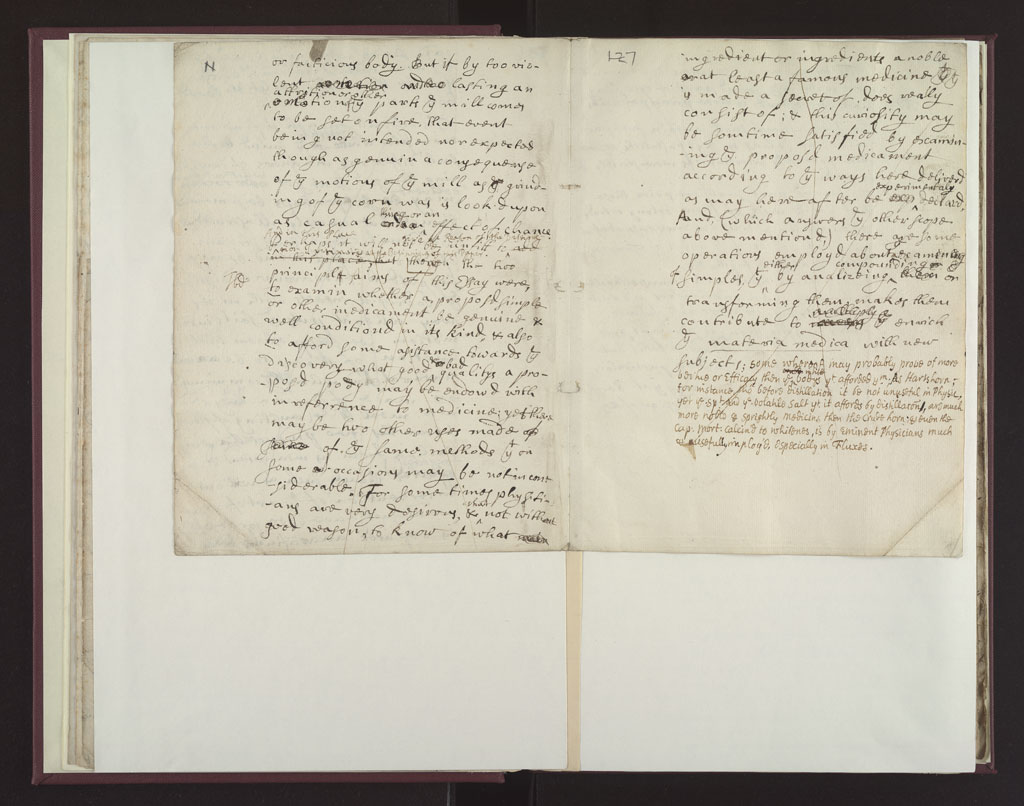 N
or factitious body. But if by too vio-
lent or too lasting an
attrition or other
of yͤ parts yͤ mill comes
to be set on fire, that event
being not intended nor expected
though as genuin a consequense
of yͤ motions of yͤ mill as yͤ grind-
ing of yͤ corn was is look'd upon
thing or an
as casual effect of chance
perhaps it will not be unfit to add
in this place that the two
principle aims of this Essay were,
to examin whether a propos'd simple
or other medicament be genuine &
well condition'd in its kind, & also
to afford some assistance towards yͤ
Discovery what good or bad qualitys a pro-
-pos'd body may be endow'd with
in reference to medicine; yet there
may be two other uses made of
of yͤ same methods yͭ on
some occasions may be not incon-
-siderable. For some times physiti-
-ans are very desirous, & that not without
good reason, to know of what
127
ingredient or ingredients a noble
or at least a famous medicine yͭ
is made a secret of, does really
consist of; & this curiosity may
be somtime satisfied by examin-
-ing yͤ propos'd medicament
according to yͤ ways here deliver'd
experimentaly
as may here after be declar'd.
And (which answers yͤ other scope
above mention'd,) there are some
operations employ'd about examening
either compounding or
simples, yͭ by analizeing or
transforming them, makes them
contribute to multiply & enrich
yͤ materia medica with new
subjects; some whereof may probably prove of more
vertue or Efficacy then yͤ bodys yͭ afforded yͫ: As Hartshorn;
for instance, tho before distillation it be not unuseful in Physic,
yet yͤ spͭ and yͤ volatile salt yͭ it affords by distillation, are much
more noble & sprightly medicins then the Crude horn: & even the
Cap. Mort: calcin'd to whitenes, is by Eminent Physicians much
& usefully imploy'd, especially in Fluxes.